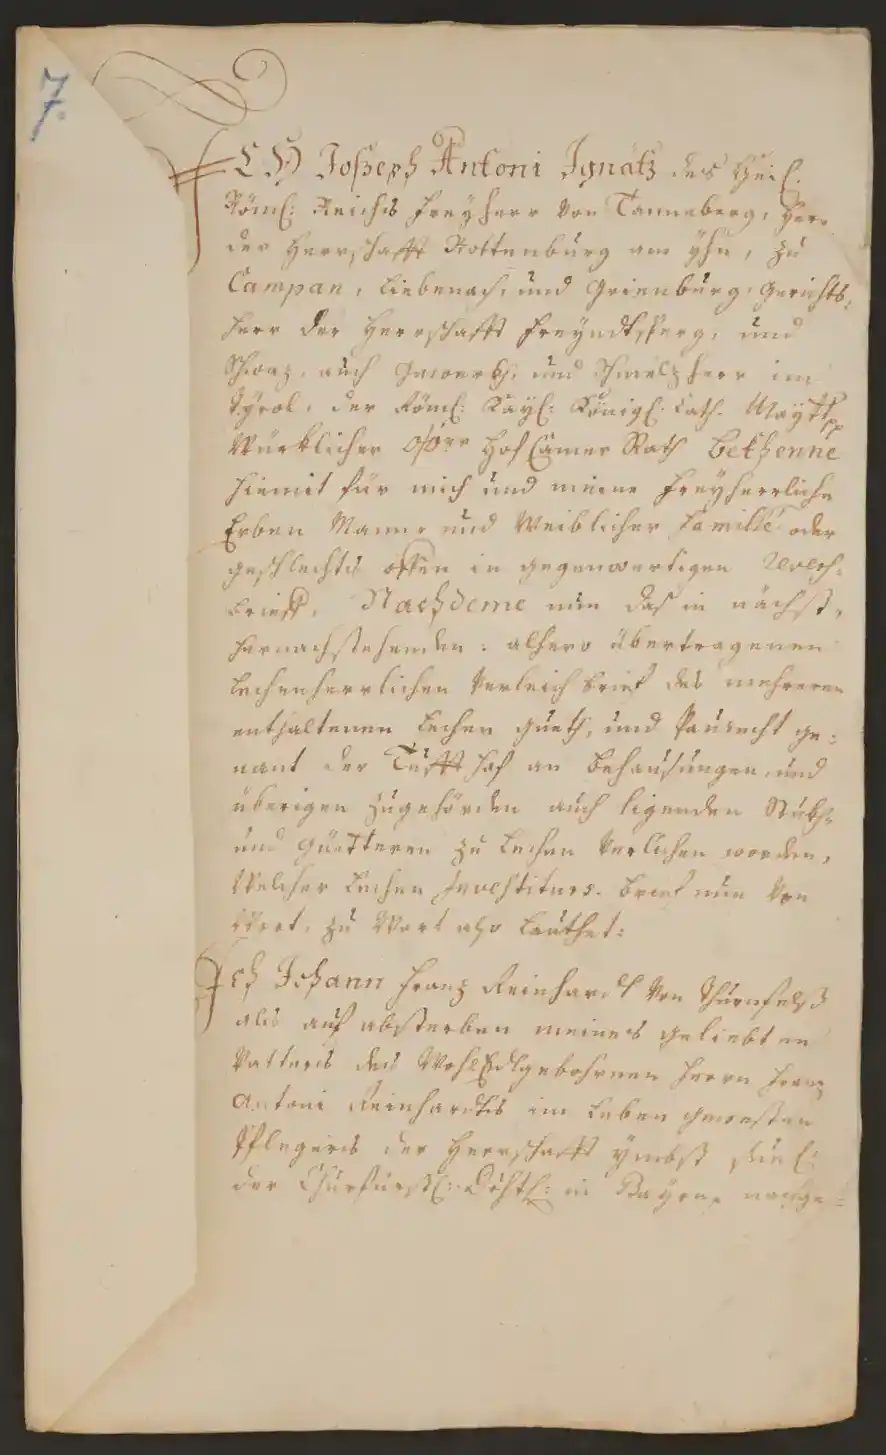 7.
ICH Joseph Antoni Ignatz des Heil:
Röml: Reichs Freyherr von Tanneberg, Herr
der Herrschafft Rottenburg am Yhn, zu
Campan, Liebenach, und Grienburg, Gerichts-
herr der Herrschafft Freyndtsperg, und
Schwaz, auch Gewerkh, und Schmelzherr im
Tyrol, der Röml: Kayl: Königl: Cath: Maytt
Würklicher Hof Camer Rath bekhenne
hiemit für mich und meine Freyherrliche
Erben Mann- und Weiblicher Famille oder
geschlechts offen in gegenwertigen Revers-
brieff, Nachdeme nun das in nächst,
hernachstehenden, alhero übertragenen
Lechenherrlichen Verleich brief des mehreren
enthaltenen Lechen gueth, und Paurecht ge-
nant der Tufft hof an behausungen, und
überigen zugehörden auch ligenden Stukh-
und Güetteren zu Lechen Verlichen worden,
Welcher Lechen Investiturs-brief nun Von
Wort, zu Wort also lauthet:
Ich Johann Franz Reinhardt Von Thurnfelß
als auf absterben meines geliebten
Vatters des WohlEdlgebohrnen Herrn Franz
Antoni Reinhardts im Leben gewesten
Pflegers der Herrschafft Ymbst
der Churfürstl: in Bayrn,